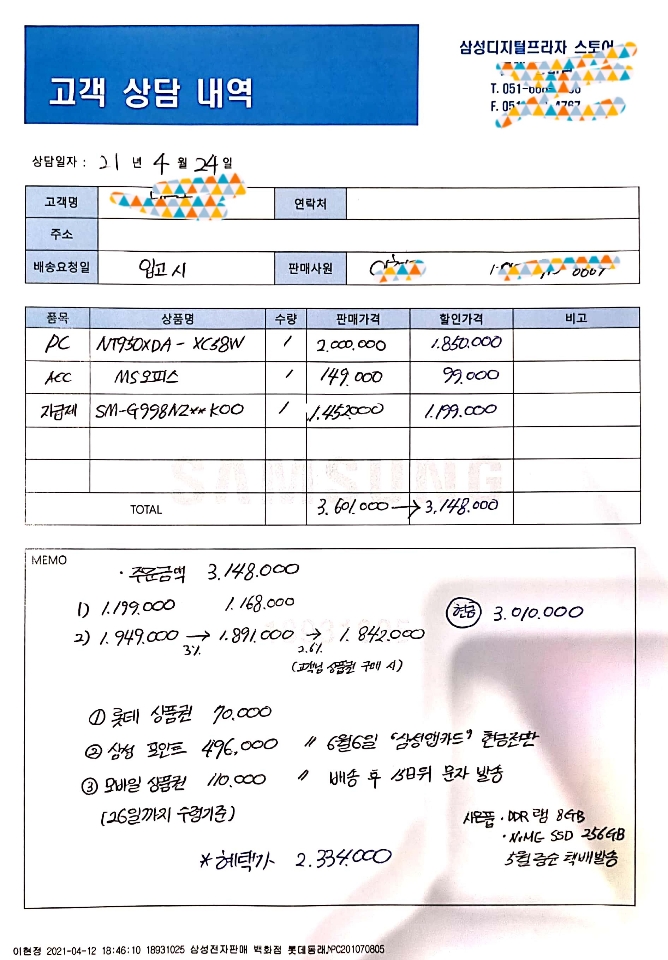 고객 상담 내역
삼성디지털프라자 스토어
T. 051-
F. 051
상담일자 : 21 년 4 월 24 일
고객명 연락처
주소
배송요청일 입고시 판매사원
품목 상품명 수량 판매가격 할인가격 비고
PC NT950XDA - XC58W 1 2.000.000 1.850.000
ACC MS오피스 1 149.000 99.000
자급제 SM-G998N2**KOO 1 1.452000 1.199.000
SAMSUNG
TOTAL 3.601.000 → 3.148.000
MEMO
· 주문금액 3.148.000
1) 1.199.000 1.168.000
현금 3.010.000
2) 1.949.000 → 1.891.000 → 1.842.000
3% 2.6%
(고객님 상품권 구매 시)
① 롯데 상품권 70.000
② 삼성 포인트 496,000 〃 6월6일 "삼성앱카드" 현금전환
③ 모바일 상품권 110.000 〃 배송 후 15일뒤 문자 발송
(26일까지 수령기준)
사은품 · DDR 램 8GB
· NVMe SSD 256GB
5월중순 택배발송
* 혜택가 2.334.000
이현정 2021-04-12 18:46:10 18931025 삼성전자판매 백화점 롯데동래,PC201070805